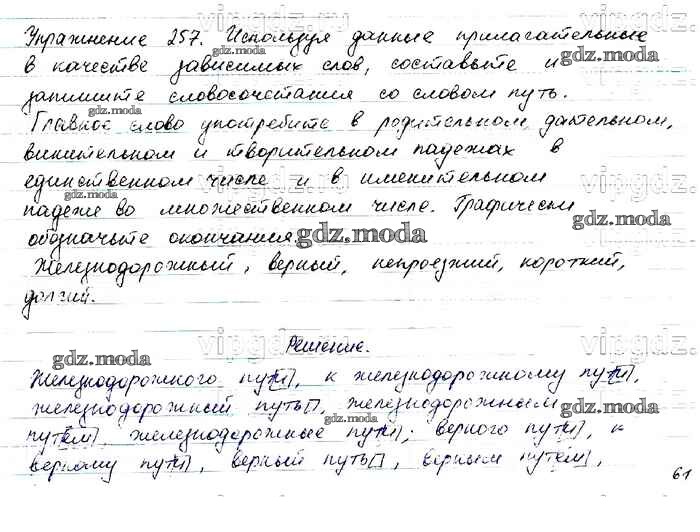 Упражнение 257. Используя данные прилагательные
в качестве зависимых слов, составьте и
запишите словосочетания со словом путь.
Главное слово употребите в родительном, дательном,
винительном и творительном падежах в
единственном числе и в именительном
падеже во множественном числе. Графически
обозначьте окончания.
Железнодорожный, верный, непроезжий, короткий,
долгий.
Решение.
Железнодорожного пути, к железнодорожному пути,
железнодорожный путь, железнодорожным
путём, железнодорожные пути; верного пути, к
верному пути, верный путь, верным путём,
61
vipgdz.ru
gdz.moda